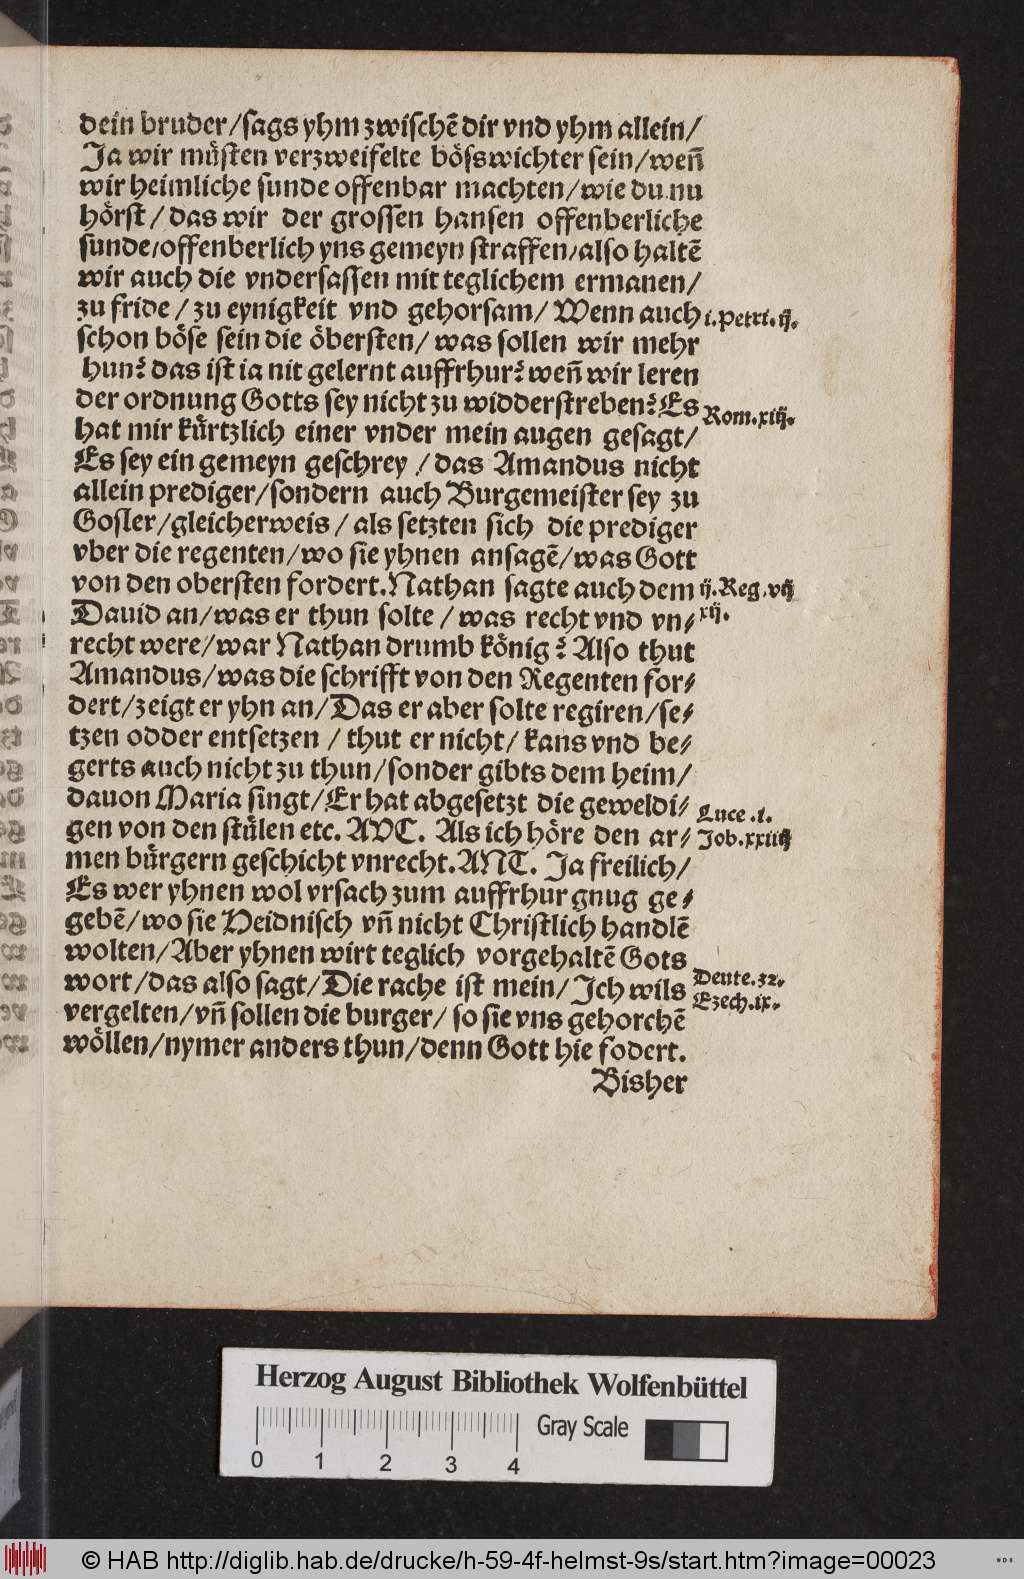 dein bruder/sags yhm zwischē dir vnd yhm allein/
Ja wir müsten verzweifelte böswichter sein/weñ
wir heimliche sunde offenbar machten/wie du nu
hörst/das wir der grossen hansen offenberliche
sunde/offenberlich yns gemeyn straffen/also haltē
wir auch die vndersassen mit teglichem ermanen/
zu fride/zu eynigkeit vnd gehorsam/Wenn auch
i.Petri.ij.
schon böse sein die öbersten/was sollen wir mehr
hun? das ist ia nit gelernt auffrhur? weñ wir leren
der ordnung Gotts sey nicht zu widderstreben? Es
Rom.xiij.
hat mir kürtzlich einer vnder mein augen gesagt/
Es sey ein gemeyn geschrey/das Amandus nicht
allein prediger/sondern auch Burgemeister sey zu
Gosler/gleicherweis/als setzten sich die prediger
vber die regenten/wo sie yhnen ansagē/was Gott
von den obersten fordert.Nathan sagte auch dem
ij.Reg.vij
xij.
Dauid an/was er thun solte/was recht vnd vn/
recht were/war Nathan drumb könig? Also thut
Amandus/was die schrifft von den Regenten for/
dert/zeigt er yhn an/Das er aber solte regiren/se/
tzen odder entsetzen/thut er nicht/kans vnd be/
gerts auch nicht zu thun/sonder gibts dem heim/
dauon Maria singt/Er hat abgesetzt die geweldi/
Luce.i.
gen von den stülen etc. AVC. Als ich höre den ar/
Job.xxiiij
men bürgern geschicht vnrecht.ANT. Ja freilich/
Es wer yhnen wol vrsach zum auffrhur gnug ge/
gebē/wo sie Heidnisch vñ nicht Christlich handlē
wolten/Aber yhnen wirt teglich vorgehaltē Gots
wort/das also sagt/Die rache ist mein/Ich wils
Deute.32.
Ezech.ix.
vergelten/vñ sollen die burger/so sie vns gehorchē
wöllen/nymer anders thun/denn Gott hie fodert.
Bisher
Herzog August Bibliothek Wolfenbüttel
Gray Scale
0 1 2 3 4
© HAB http://diglib.hab.de/drucke/h-59-4f-helmst-9s/start.htm?image=00023